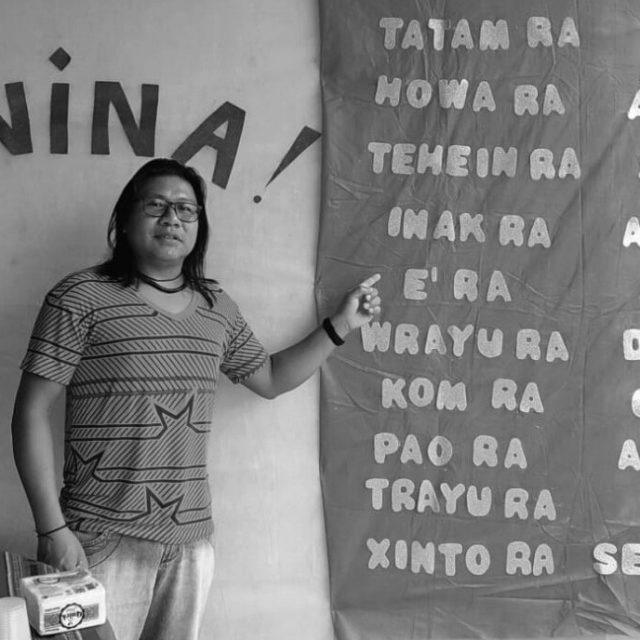 NINA!
TATAM RA
HOWA RA
TEHEIN RA
INAK RA
E' RA
WRAYU RA
KOM RA
PAO RA
TRAYU RA
XINTO RA